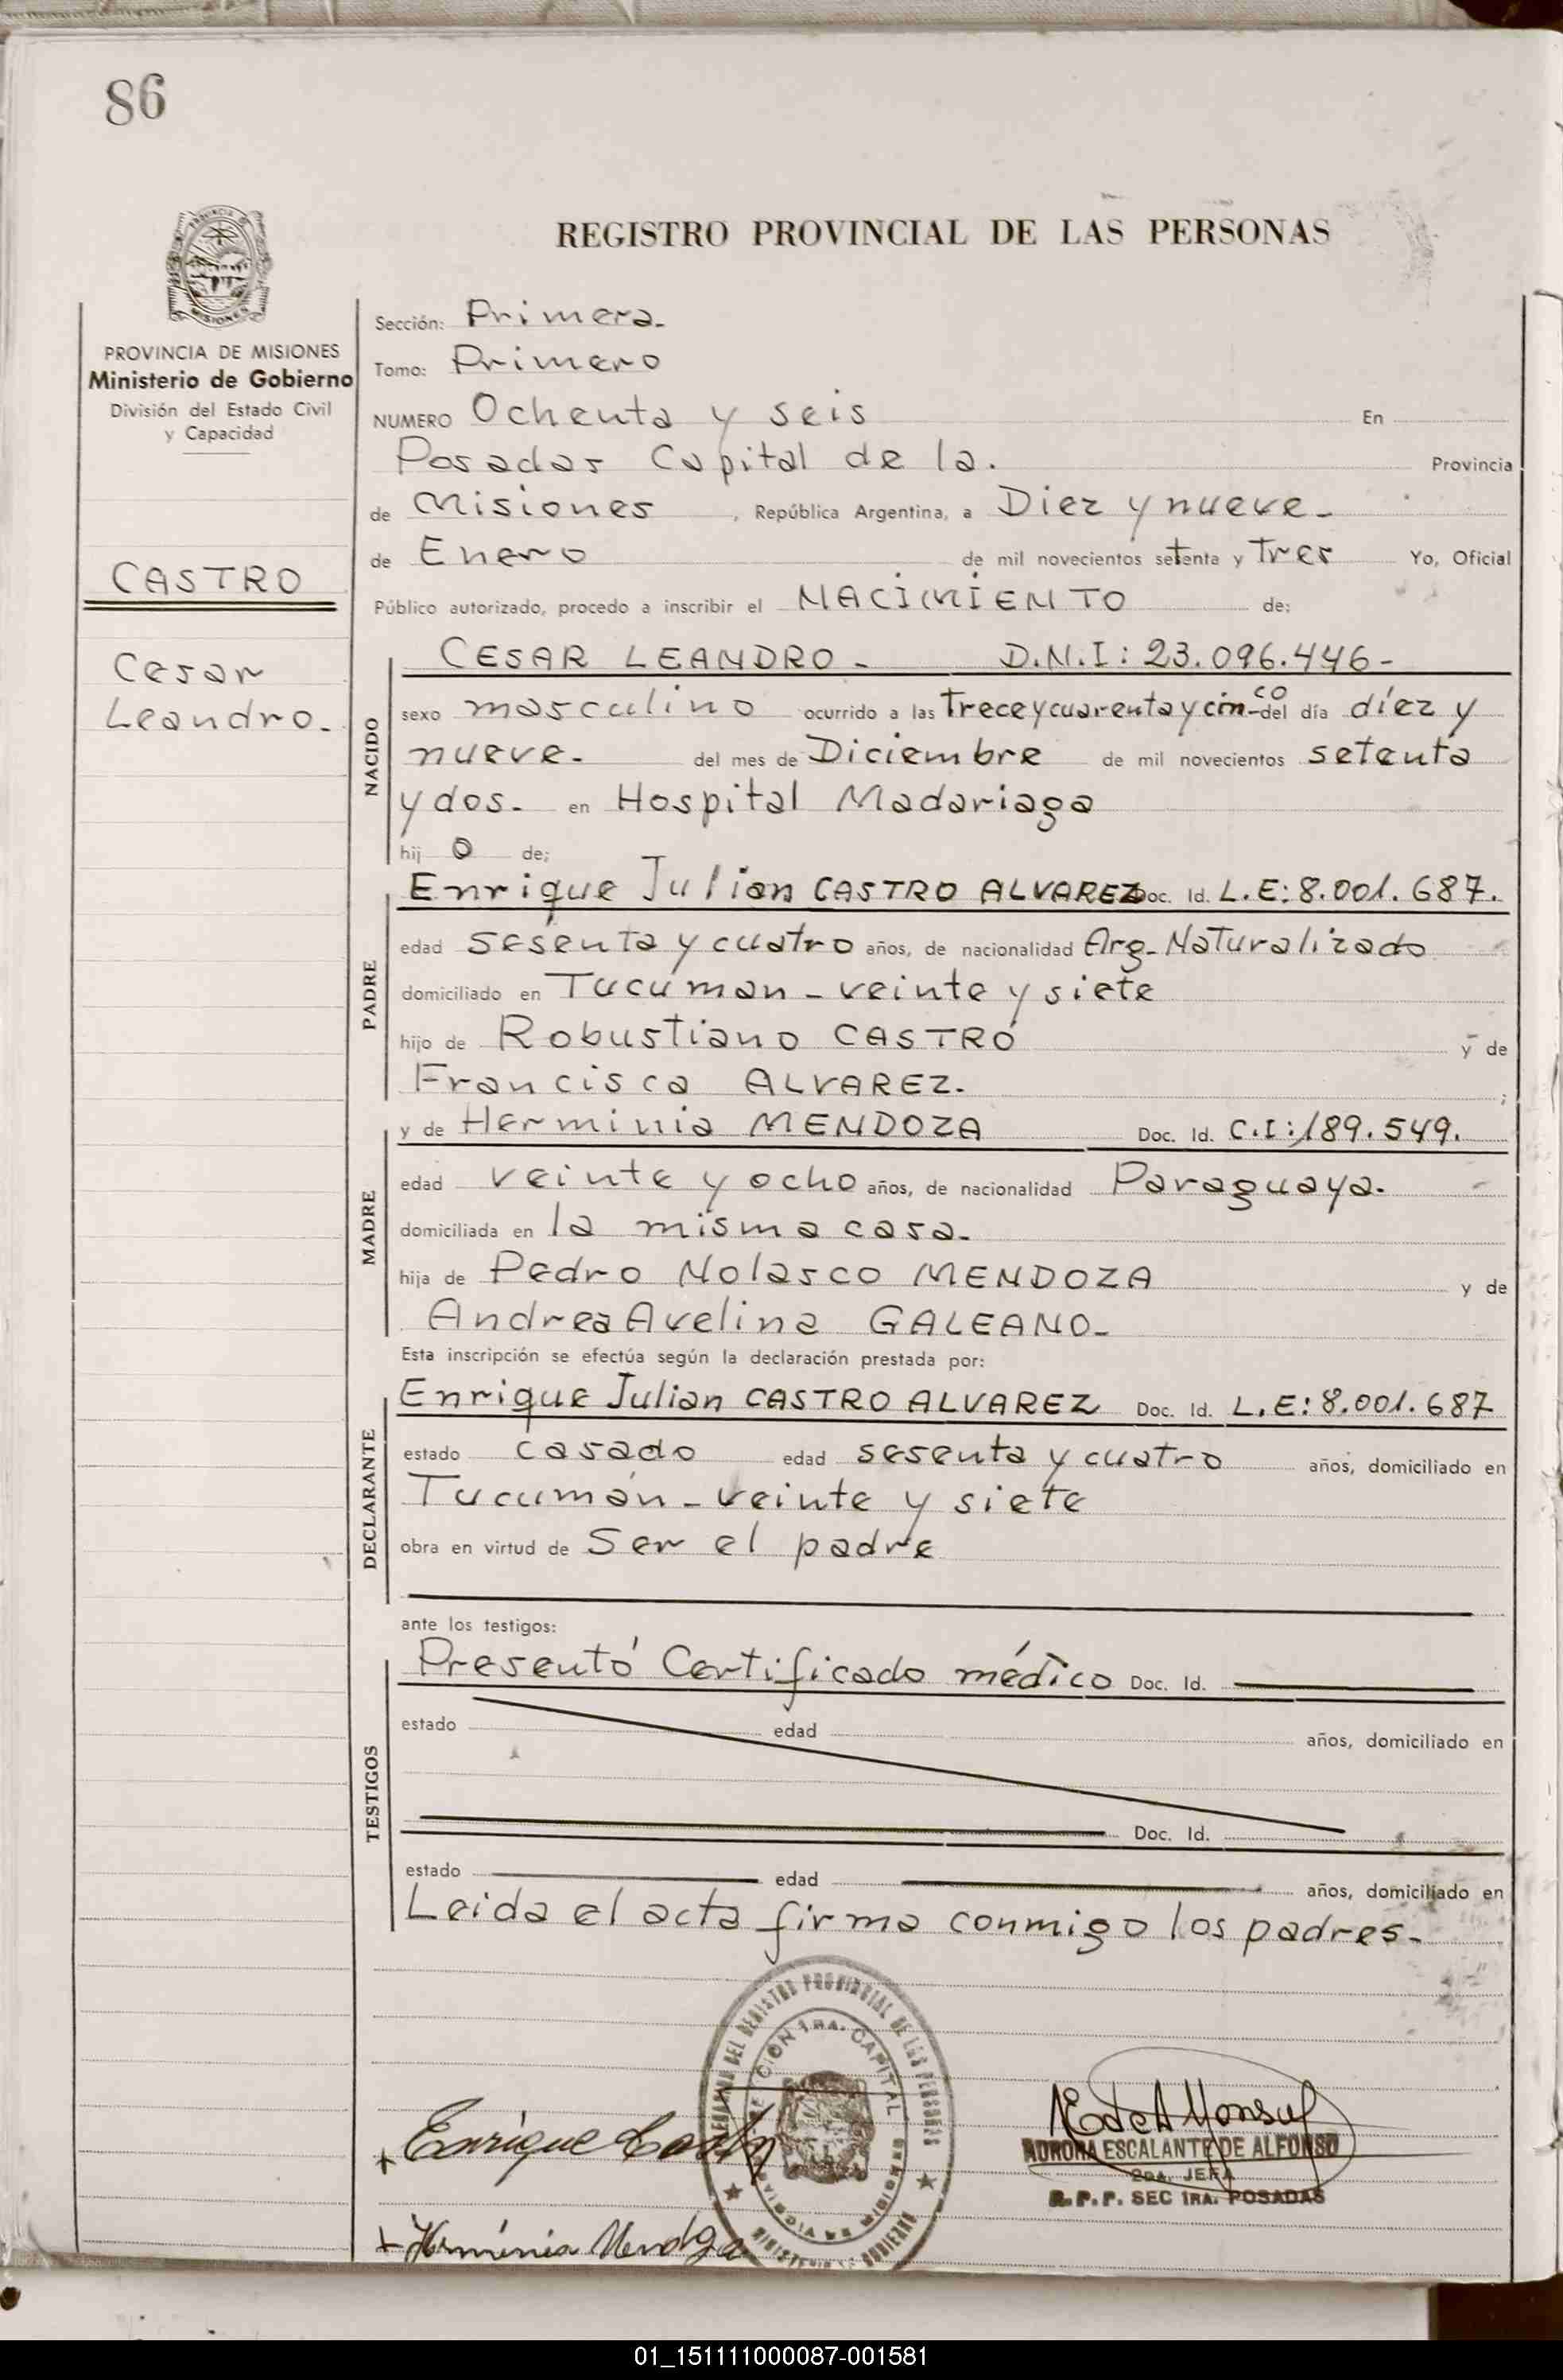 86
REGISTRO PROVINCIAL DE LAS PERSONAS
PROVINCIA DE MISIONES
Ministerio de Gobierno
División del Estado Civil
y Capacidad
CASTRO
Cesar
Leandro.
Sección: Primera.
Tomo: Primero
NUMERO Ochenta y seis En
Posadas Capital de la. Provincia
de Misiones, República Argentina, a Diez y nueve.
de Enero de mil novecientos setenta y Tres Yo, Oficial
Público autorizado, procedo a inscribir el NACIMIENTO de:
NACIDO
CESAR LEANDRO - D.N.I: 23.096.446-
sexo masculino ocurrido a las Trece y cuarenta y cinco del día díez y
nueve. del mes de Diciembre de mil novecientos setenta
y dos. en Hospital Madariaga
hij o de;
PADRE
Enrique Julian CASTRO ALVAREZ Doc. Id. L.E: 8.001.687.
edad sesenta y cuatro años, de nacionalidad Arg. Naturalizado
domiciliado en Tucúman - veinte y siete
hijo de Robustiano CASTRO y de
Francisca ALVAREZ. ;
MADRE
y de Herminia MENDOZA Doc. Id. C.I: 189.549.
edad veinte y ocho años, de nacionalidad Paraguaya.
domiciliada en la misma casa.
hija de Pedro Nolasco MENDOZA y de
Andrea Avelina GALEANO-
Esta inscripción se efectúa según la declaración prestada por:
DECLARANTE
Enrique Julian CASTRO ALVAREZ Doc. Id. L.E: 8.001.687
estado casado edad sesenta y cuatro años, domiciliado en
Tucumán - veinte y siete
obra en virtud de Ser el padre
ante los testigos:
TESTIGOS
Presentó Certificado médico Doc. Id.
estado edad años, domiciliado en
Doc. Id.
estado edad años, domiciliado en
Leida el acta firma conmigo los padres-
REGISTRO PROVINCIAL DE LAS PERSONAS
SECCION 1RA. CAPITAL
MINISTERIO DE GOBIERNO
Enrique Castro
AURORA ESCALANTE DE ALFONSO
2DA. JEFA
R.P.P. SEC 1RA. POSADAS
Herminia Mendoza
01_151111000087-001581